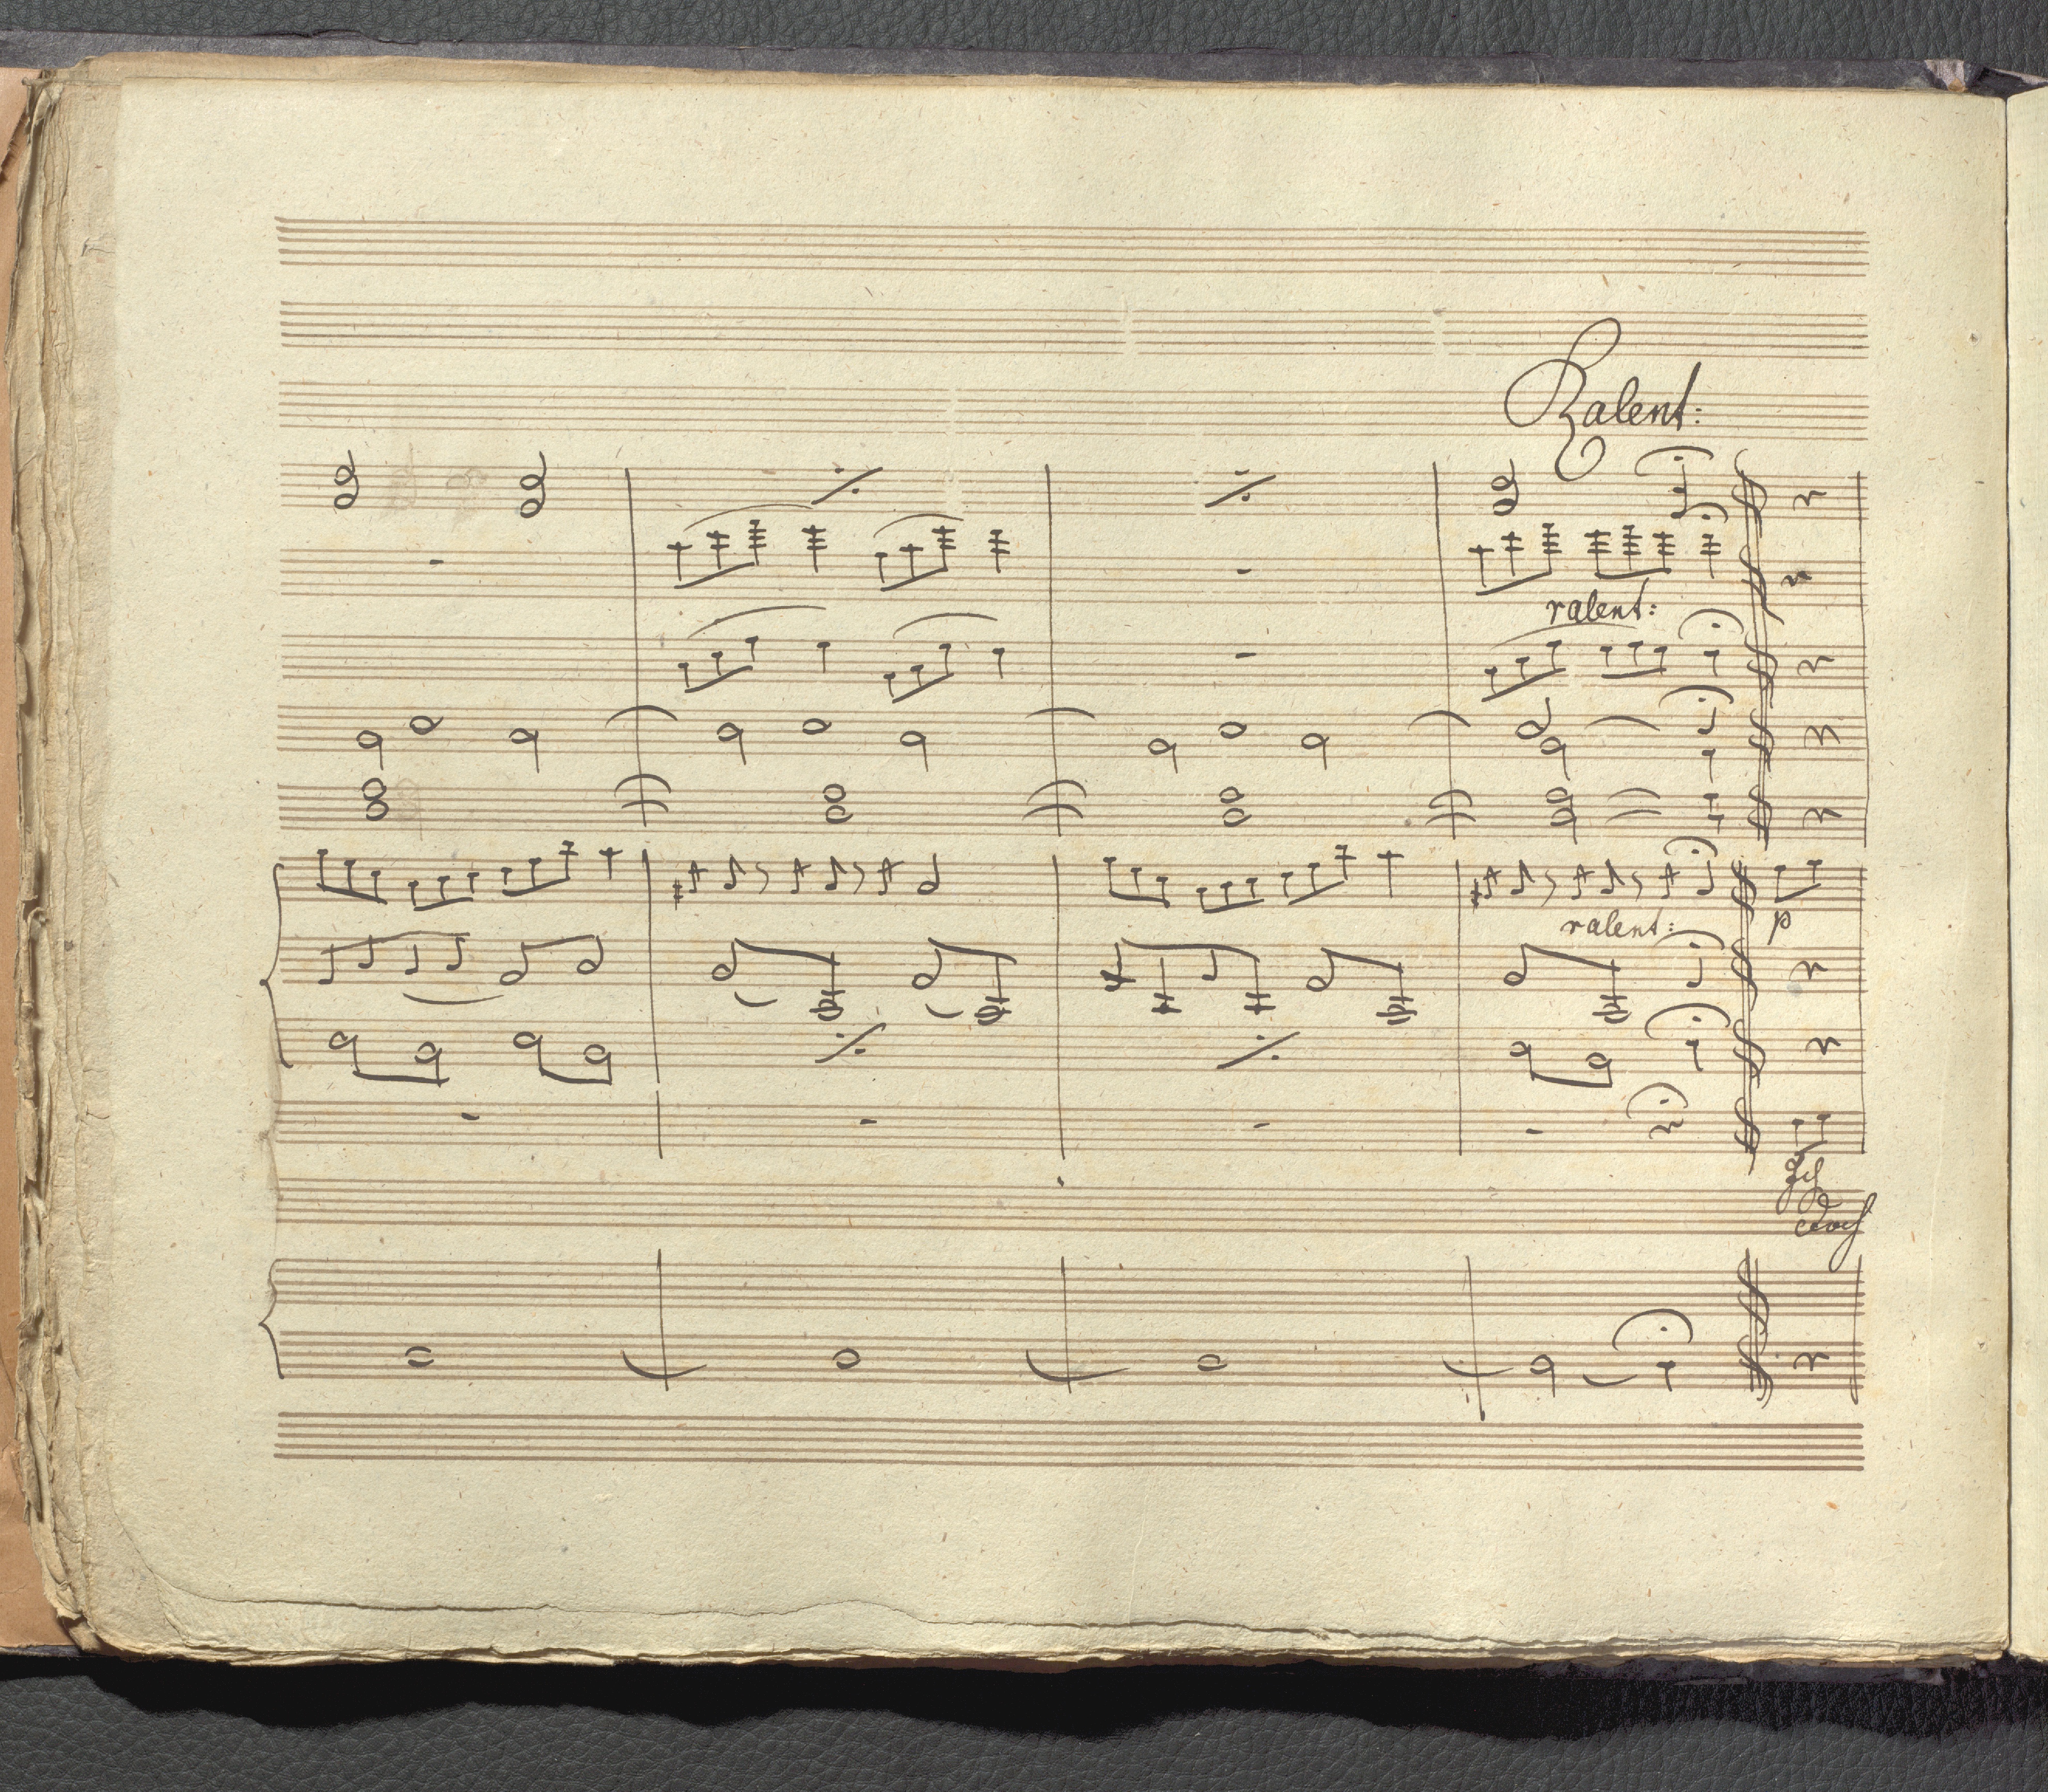 Ralent:
ralent:
ralent:
p
doch